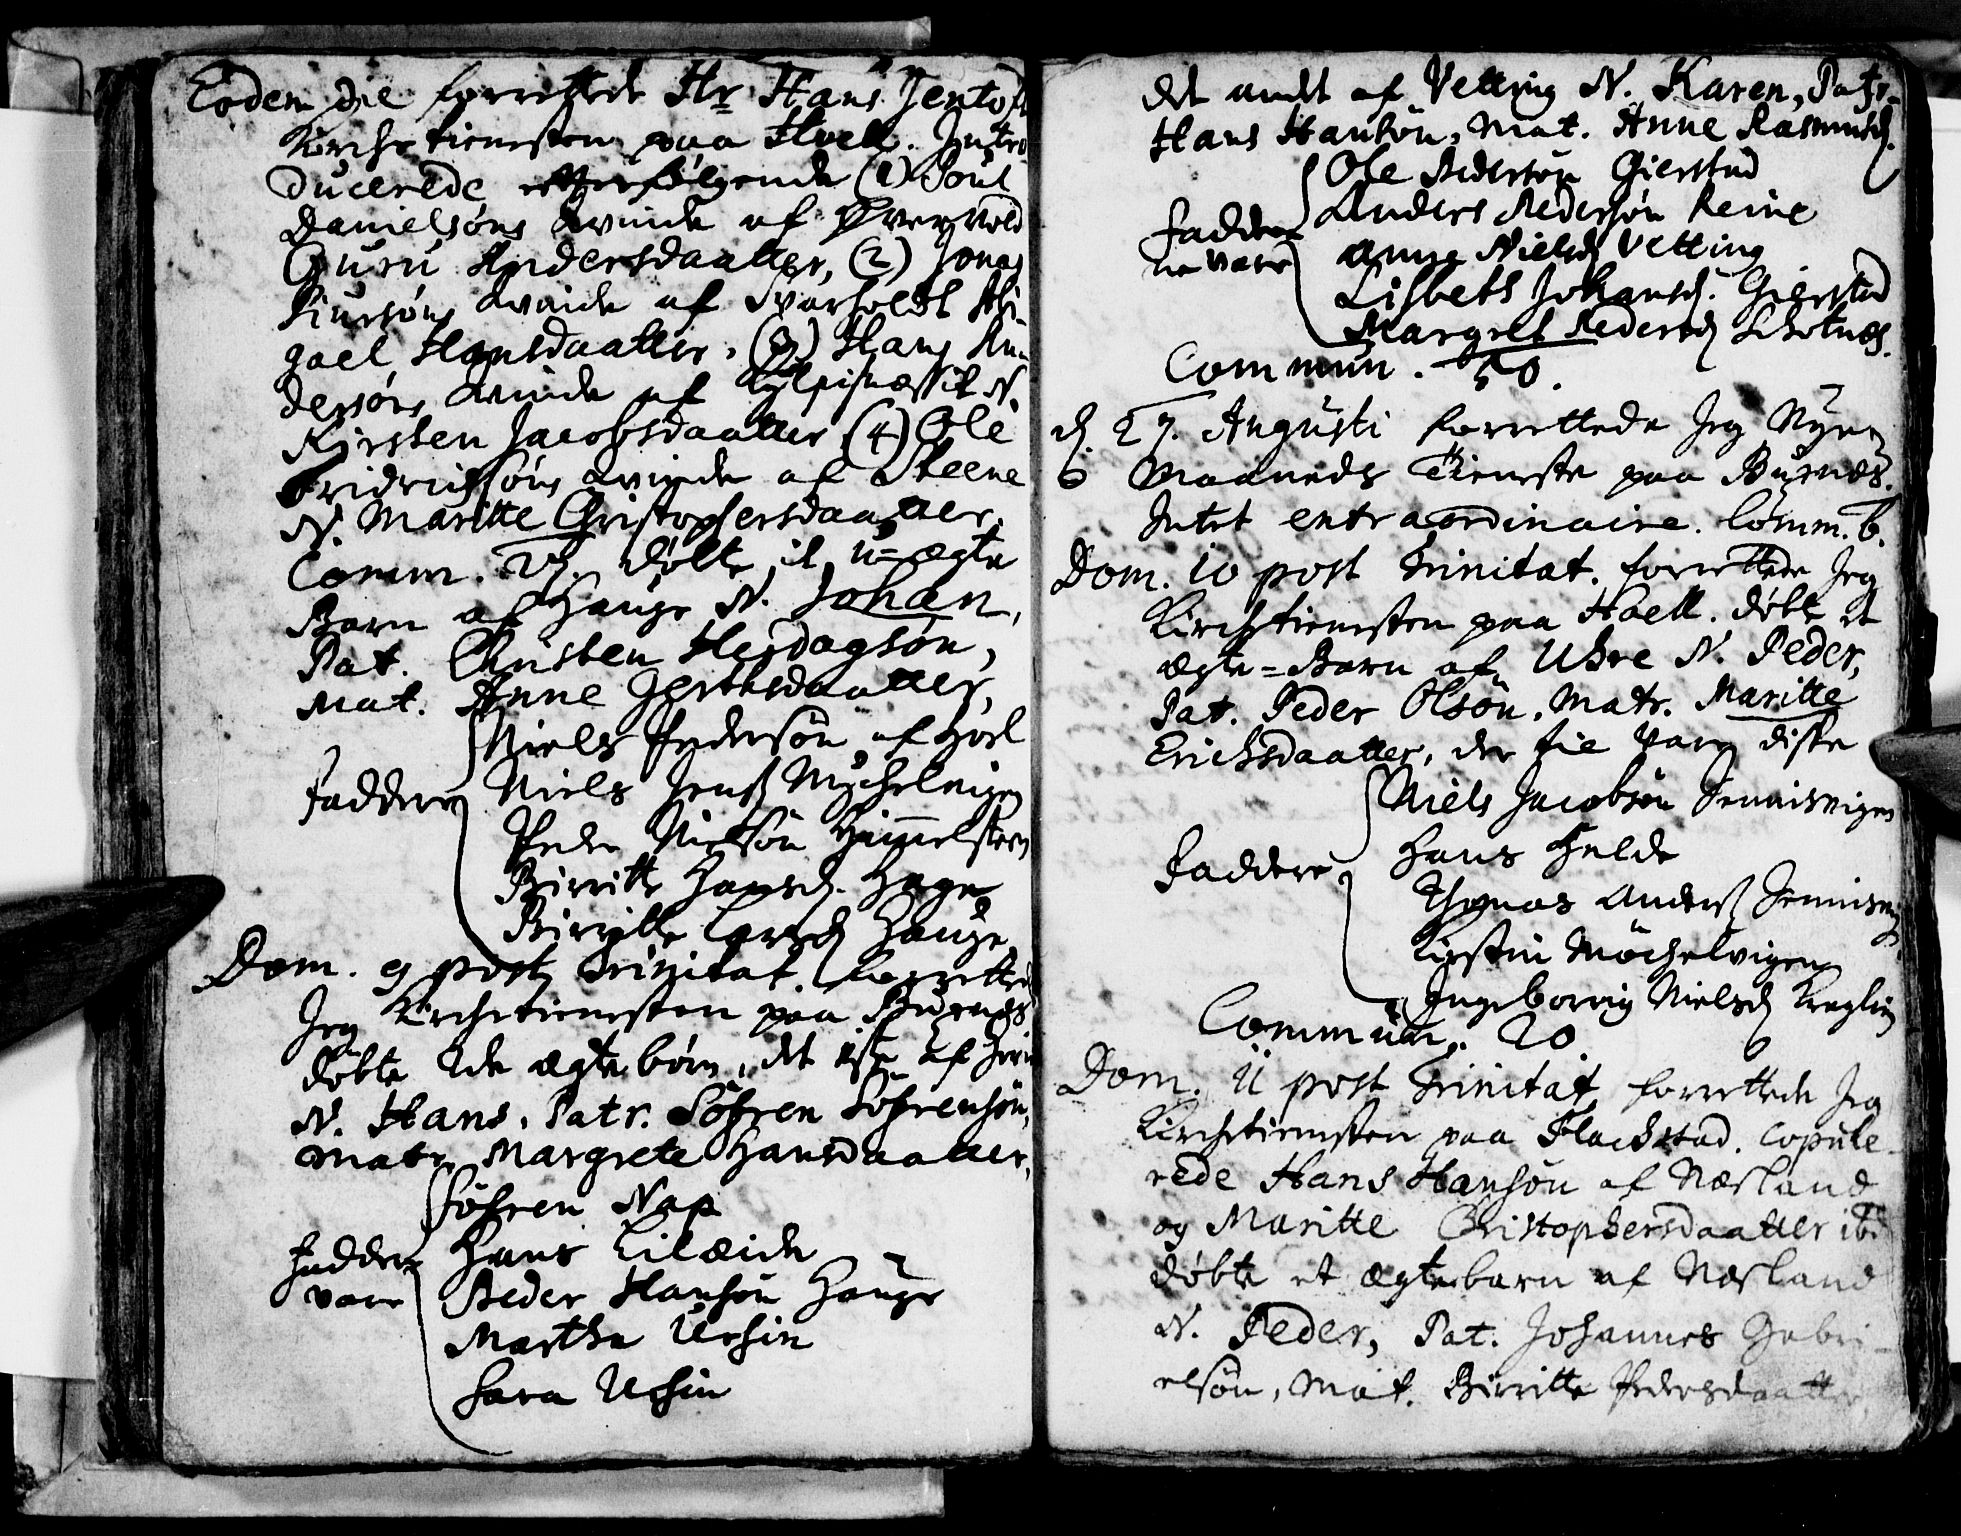 Eodem die forrettede Hr. Hans Jentoft
Kirchetienesten paa Hoell. Intro-
ducerede efterfølgende (1) Poul
Danielsøns Qvinde af Øvervold
Guru Andersdaatter, (2) Jonas
Siursøns Qvinde af Svarholdt Abi-
gael Hansdaatter, (3) Hans An-
dersøns Qvinde af N.
Kirsten Jacobsdaatter (4) Ole
Fridrichsøns Qvinde af Steene
N. Maritte Christophersdaatter.
Comm. 23. døbte it u-ægte
Barn af Hauge N. Johan,
Pat. Christen Herdagsøn,
Mat. Anne Jertsdaatter,
Faddere
Niels Pedersøn af Hoel
Niels Jenß Mychelvigen
Peder Nielsøn Himmelsteen
Birritte Hansd. Hage
Birritte Larsd. Hauge
Dom. 9 post Trinitat. forrettede
Jeg Kirchetienesten paa Buxnæs
døbte 2de ægte børn, det 1ste af
N. Hans, Patr. Söfren Söfrensøn,
Matr. Margrete Hansdaatter,
Faddere
vare
Söfren Nap
Hans Lilæide
Peder Hansøn Hauge
Martha Ursin
Sara Ursin
det andet af Vetting N. Karen, Patr.
Hans Hansøn, Mat. Anne Rasmusd.
Faddere-
ne vare
Ole Pedersøn Gierstad
Anders Pedersøn Reine
Anne Nielsd. Vetting
Lisbeth Johansd. Gierstad
Margret Pedersd. Schotnæs.
Commun. 50.
d. 27. Augusti forrettede Jeg Nye
Maaneds Tieneste paa Buxnæs.
Intet extraordinaire. Comm. 6.
Dom. 10 post Trinitat. forrettede Jeg
Kirchetienesten paa Hoell. døbte et
ægte-Barn af Uhre N. Peder,
Pat. Peder Olsøn, Matr. Maritte
Erichsdaatter, der til vare diße
Faddere
Niels Jacobsøn Sennisvigen
Hans Helde
Thomas Anderß
Kirstin Möchelvigen
Ingeborrig Nielsd.
Commun. 20
Dom. 11 post Trinitat. forrettede Jeg
Kirchetienesten paa Flackstad. Copule-
rede Hans Hansøn af Næsland
og Maritte Christophersdaatter ibd.
døbte et ægtebarn af Næsland
N. Peder, Pat. Johannes Gabri-
elsøn, Mat. Birritte Pedersdaatter,